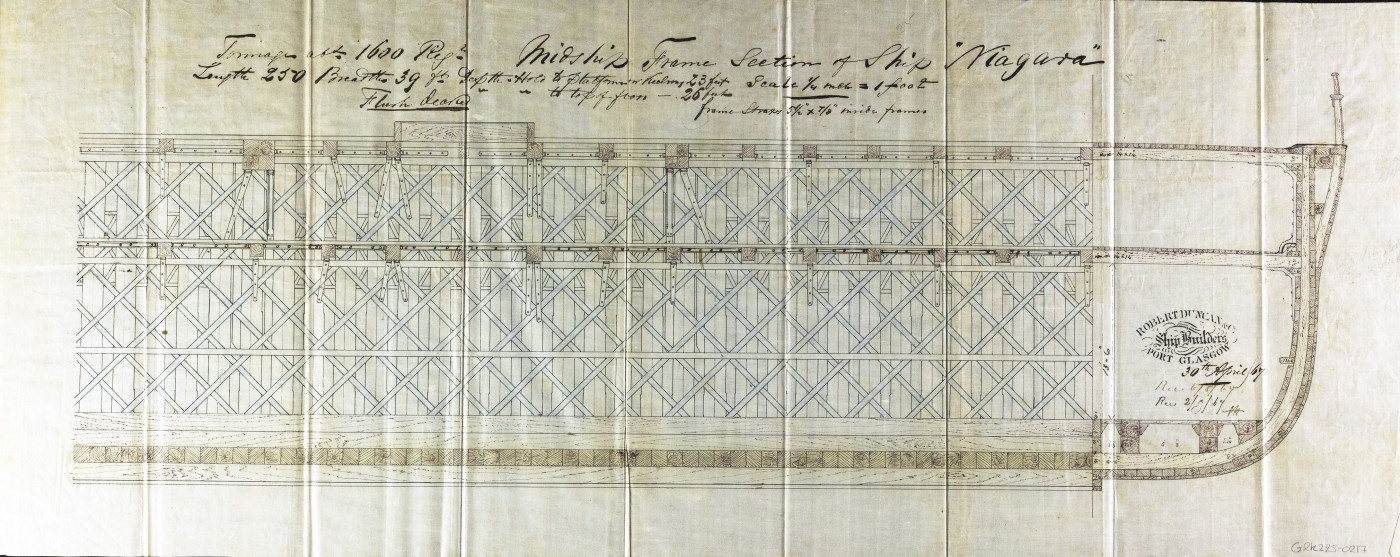 Tonnage abt. 1600 Regr.
Midship Frame Section of Ship "Niagara"
Length 250 Breadth 39 ft Depth of Hold to Platform on Keelsons 23 feet Scale ¼ inch = 1 foot
Flush decked " " to top of floors — 26 feet
Frame Straps 5½" x 7/8" inside frames
ROBERT DUNCAN & Co.
Ship Builders
PORT GLASGOW
30th April/67
Rec 2/5/67
15-6"
GRK225-0217